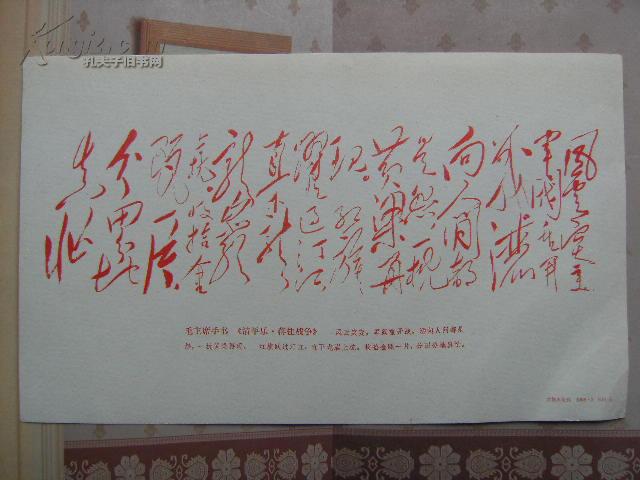 Kongfz.com
孔夫子旧书网
风云突变
军阀重开
战洒
向人间都
是怨一枕
黄粱再
现红旗
跃过汀江
直下
龙岩上
杭收拾金
瓯一片
分田分地
真忙
毛主席手书 《清平乐·蒋桂战争》 风云突变，军阀重开战。洒向人间都是
怨，一枕黄粱再现。 红旗跃过汀江，直下龙岩上杭。收拾金瓯一片，分田分地真忙。